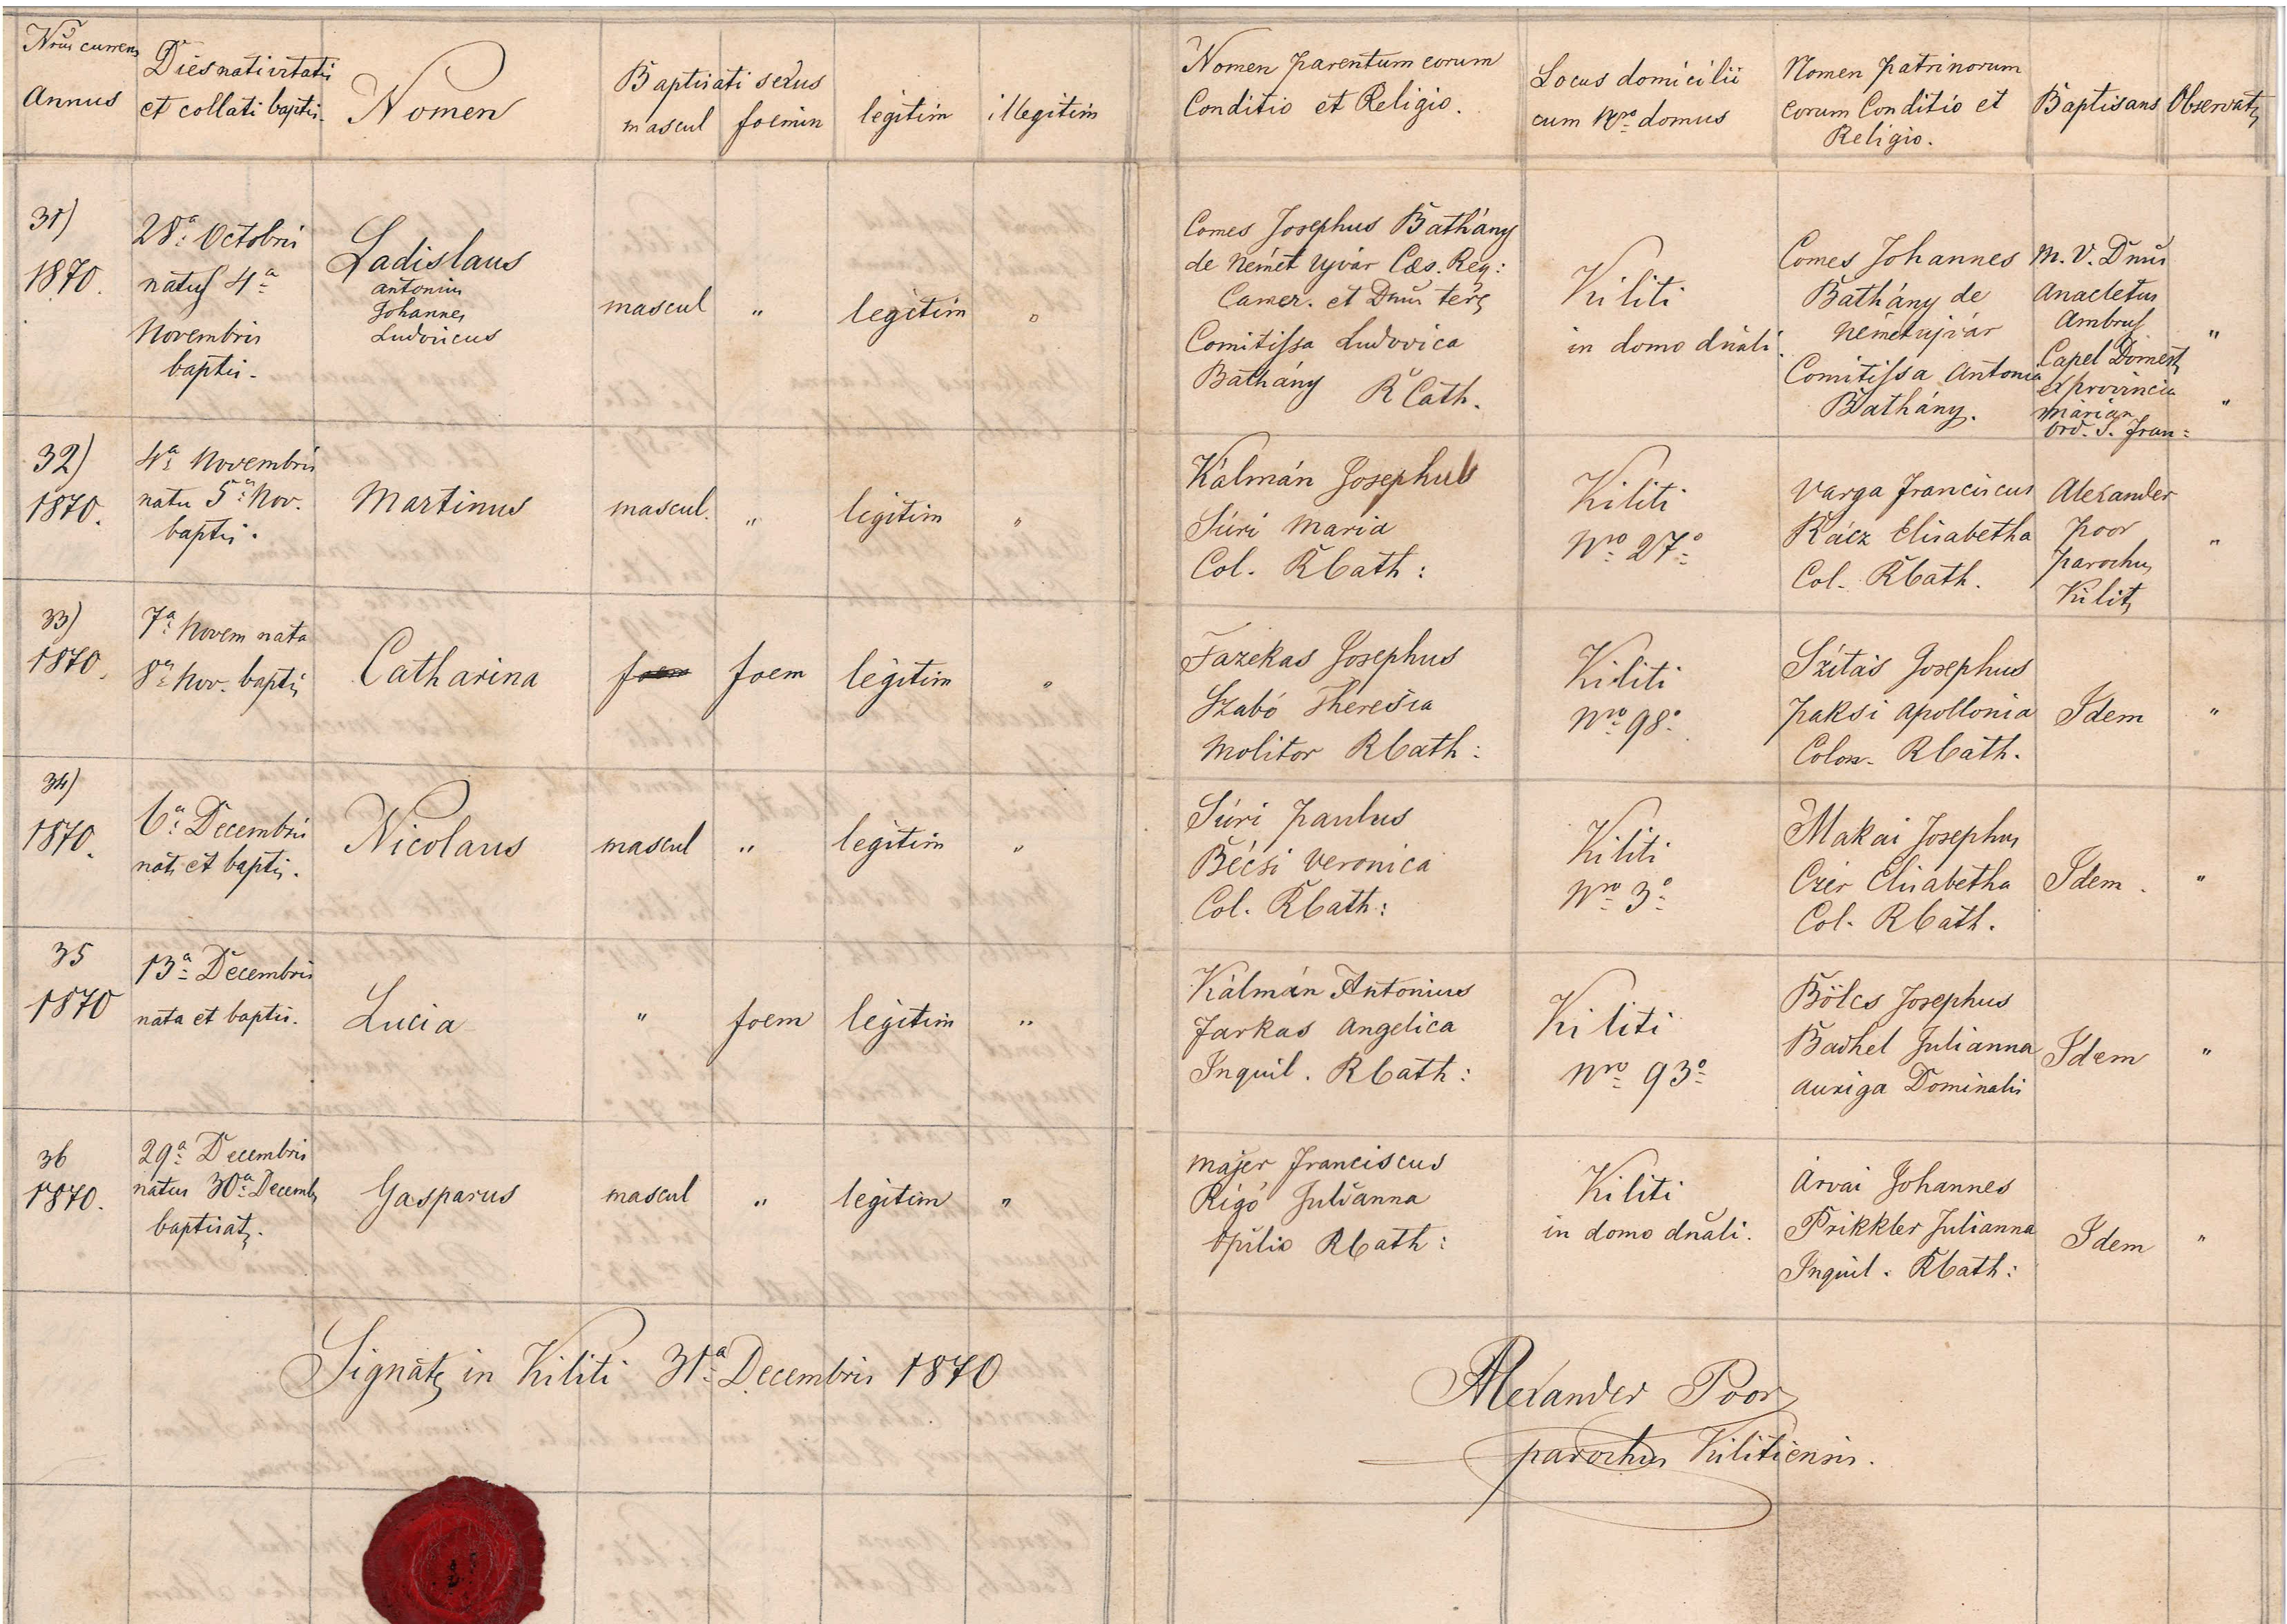 Nrus currens
Annus
Dies nativitatis
et collati baptis.
Nomen
Baptisati sexus
mascul foemin legitim illegitim
Nomen parentum eorum
Conditio et Religio.
Locus domicilii
cum Nro domus
Nomen patrinorum
eorum Conditio et
Religio.
Baptisans
Observat
31)
1870.
28a Octobris
natus 4a
Novembris
baptis.
Ladislaus
Antonius
Johannes
Ludovicus
mascul " legitim "
Comes Josephus Batthány
de Német Ujvár Cæs. Reg:
Camer. et Dnus
Comitissa Ludovica
Batthány R Cath.
Kiliti
in domo dnali.
Comes Johannes
Batthány de
Németujvár
Comitissa Antonia
Batthány.
M. V. Dnus
Anacletus
Ambrus
Capel Domest
ex provincia
Marian
Ord. S. Fran:
"
"
32)
1870.
4a Novembris
natu 5a Nov.
baptis.
Martinus
mascul. " legitim "
Kálmán Josephus
Súri Maria
Col. RCath:
Kiliti
Nro 27o
Varga Franciscus
Rácz Elisabetha
Col. RCath.
Alexander
Poor
parochus
Kilit
"
33)
1870.
7a Novem nata
8a Nov. baptis
Catharina
foem foem legitim "
Fazekas Josephus
Szabó Theresia
Molitor RCath:
Kiliti
Nro 98o
Szitás Josephus
Paksi Apollonia
Colon. RCath.
Idem
"
34)
1870.
6a Decembris
nat et baptis.
Nicolaus
mascul " legitim "
Súri Paulus
Bécsi Veronica
Col. RCath:
Kiliti
Nro 3o
Makai Josephus
Czér Elisabetha
Col. RCath.
Idem.
"
35
1870
13a Decembris
nata et baptis.
Lucia
" foem legitim "
Kálmán Antonius
Farkas Angelica
Inquil. RCath:
Kiliti
Nro 93o
Bölcs Josephus
Badhel Julianna
auriga Dominalis
Idem
"
36
1870.
29a Decembris
natus 30a Decemb
baptisat.
Gasparus
mascul " legitim "
Májer Franciscus
Rigó Julianna
Opilio RCath:
Kiliti
in domo dnali.
Árvai Johannes
Prikkler Julianna
Inquil. RCath:
Idem
"
Signat in Kiliti 31a Decembris 1870
Alexander Poor
parochus Kilitiensis.